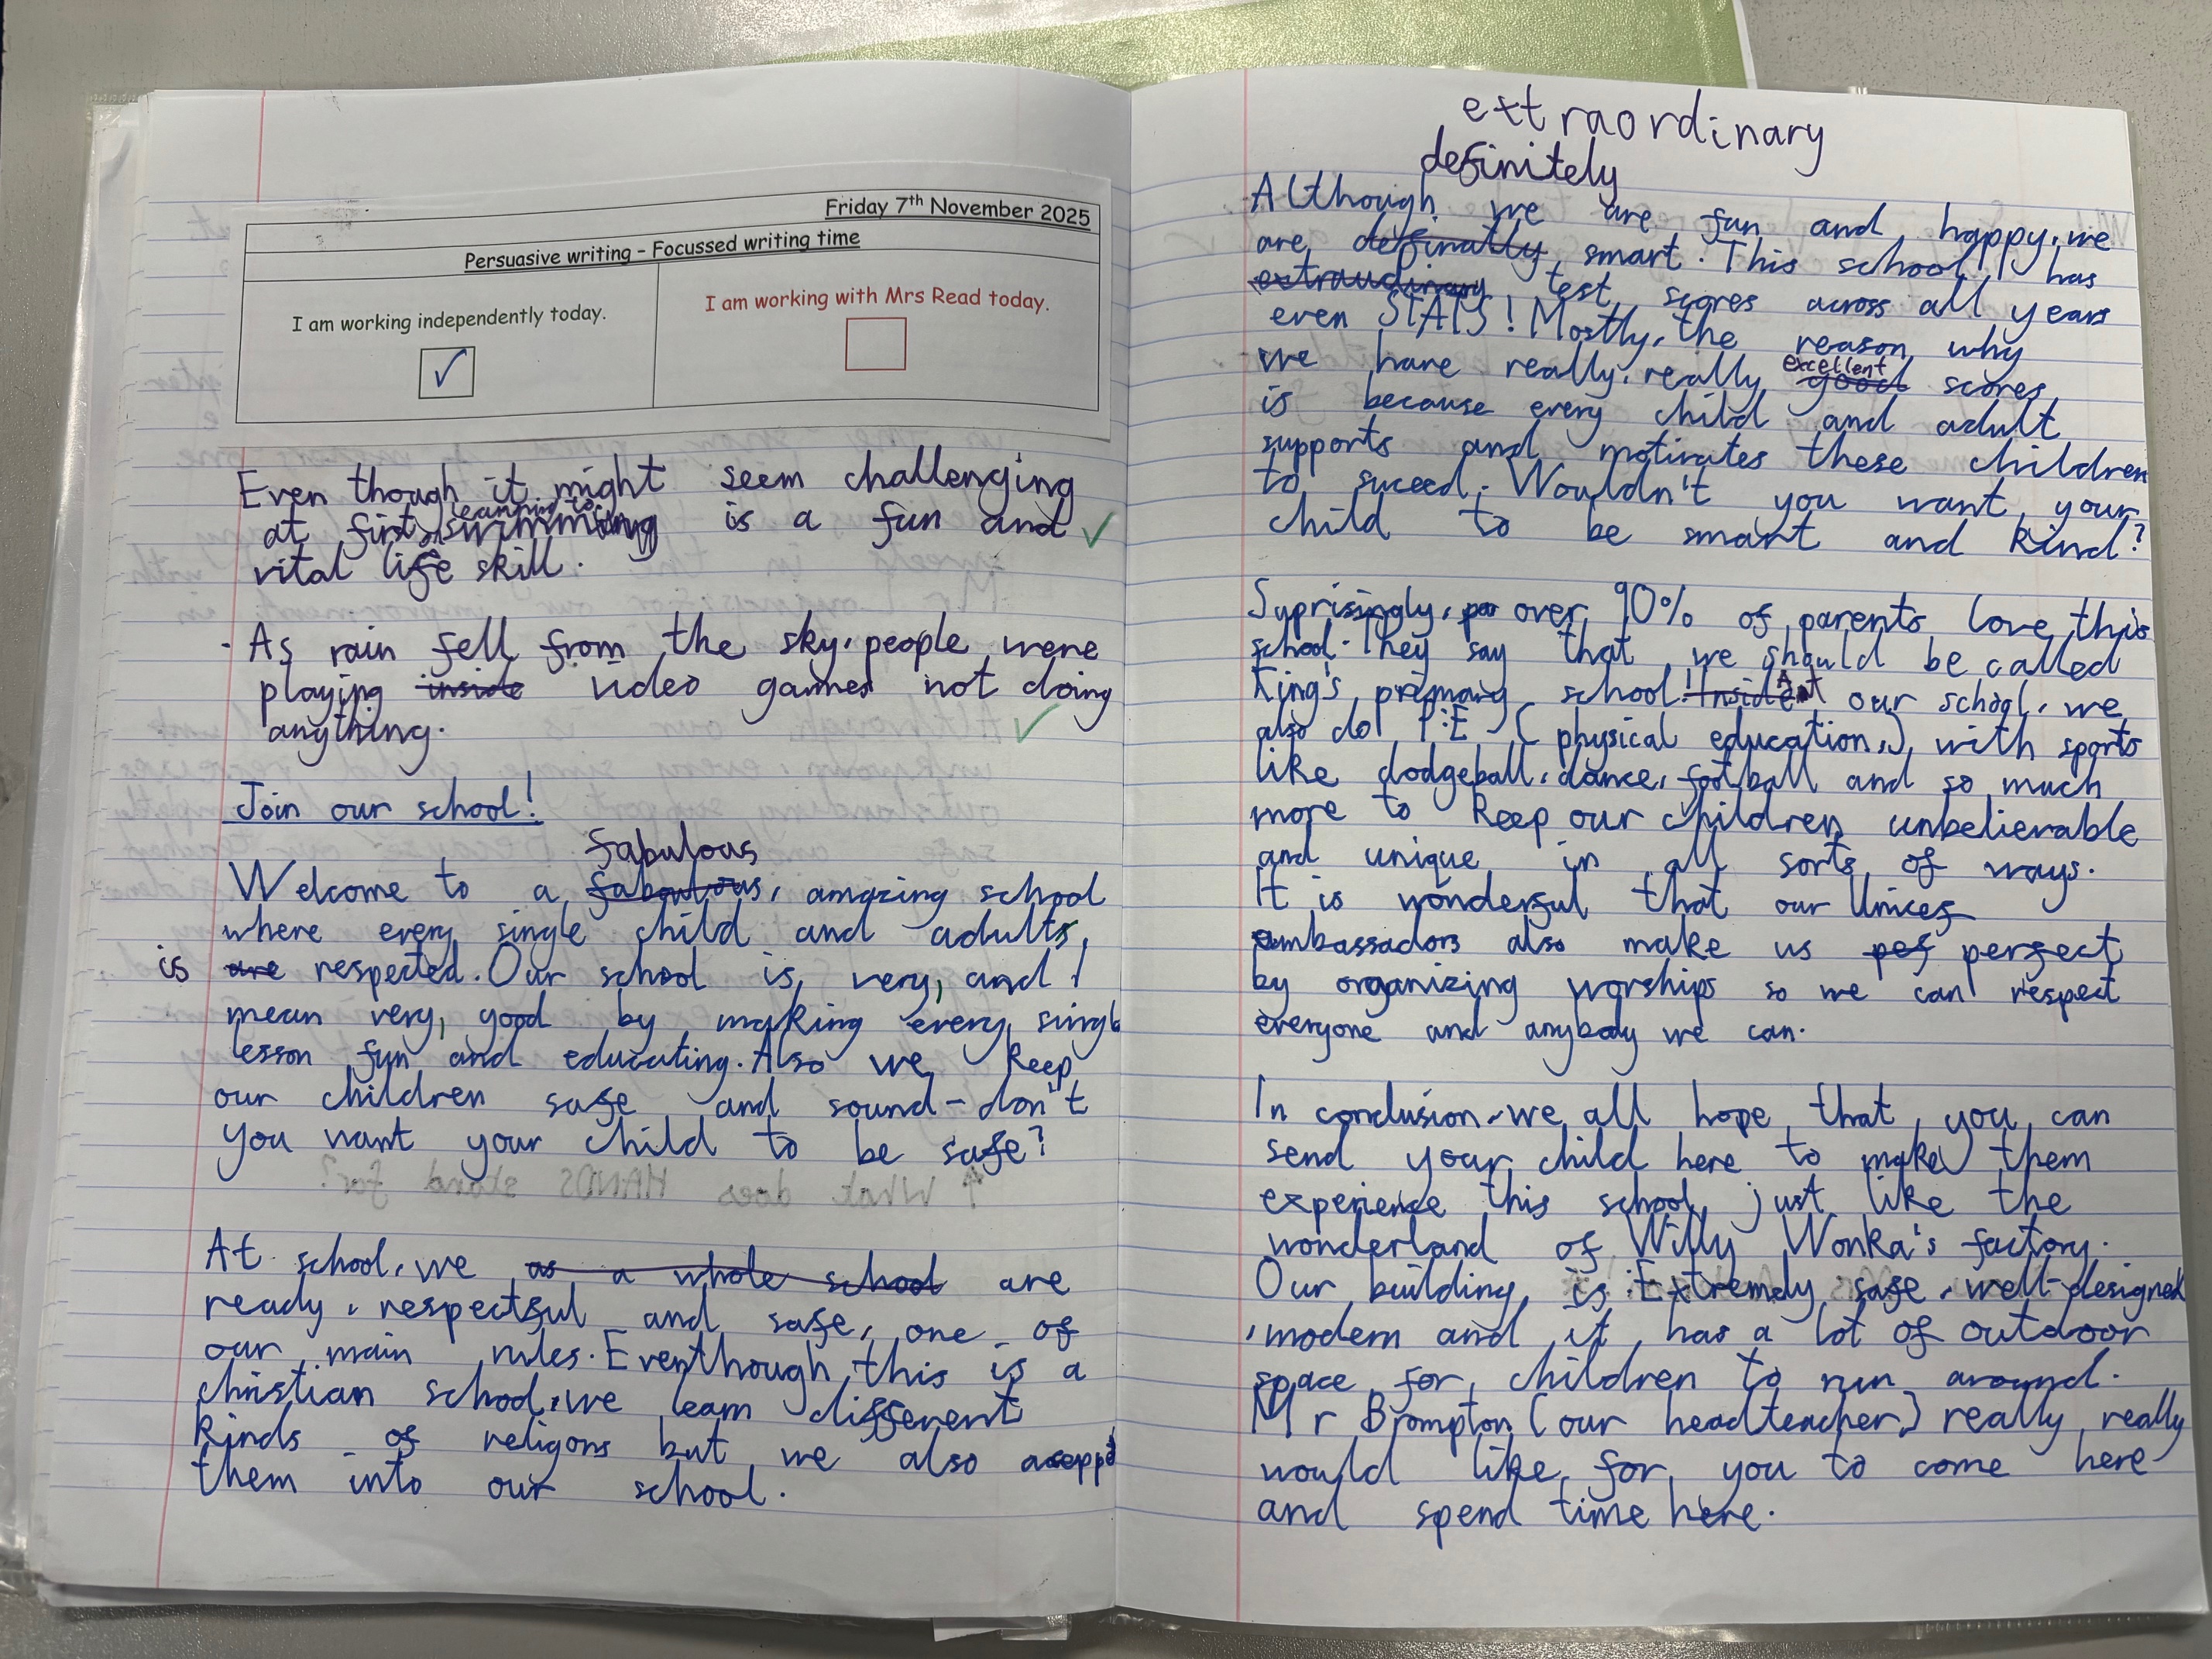 Friday 7th November 2025
Persuasive writing – Focussed writing time
I am working independently today.
✓
I am working with Mrs Read today.
Even though it might seem challenging
at first, learning to swimming is a fun and ✓
vital life skill.
- As rain fell from the sky, people were
playing inside video games not doing
anything. ✓
Join our school!
fabulous
Welcome to a faboulous, amazing school
where every single child and adults,
is are respected. Our school is very, and I
mean very, good by making every single
lesson fun and educating. Also we keep
our children safe and sound - don't
you want your child to be safe?
At school, we as a whole school are
ready, respectful and safe, one of
our main rules. Eventhough this is a
christian school, we learn different
kinds of religons but we also
them into our school.
extraordinary
definitely
Although we are fun and happy, we
are definatly smart. This school has
extraudinary test scores across all years
even STATS! Mostly, the reason why
we have really, really excellent good scores
is because every child and adult
supports and motivates these children
to suceed. Wouldn't you want your
child to be smart and kind?
Suprisingly, over 90% of parents love this
school. They say that we should be called
King's primary school! Inside At our school, we
also do P.E (physical education,) with sports
like dodgeball, dance, football and so much
more to keep our children unbelievable
and unique in all sorts of ways.
It is wonderful that our Unicef
ambassadors also make us pef perfect
by organizing worships so we can respect
everyone and anybody we can.
In conclusion, we all hope that you can
send your child here to make them
experience this school just like the
wonderland of Willy Wonka's factory.
Our building is Extremely safe, well-designed
, modern and it has a lot of outdoor
space for children to run around.
Mr Brompton (our headteacher) really really
would like for you to come here
and spend time here.